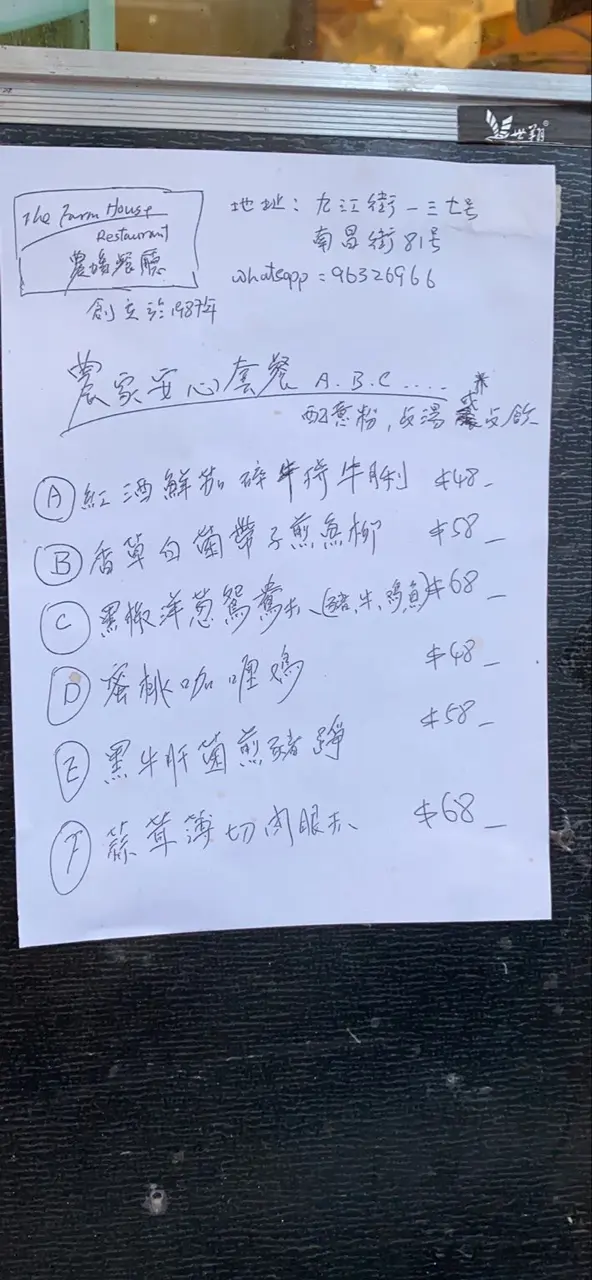 世翔®
The Farm House
Restaurant
農場餐廳
創立於1987年
地址：九江街一三七号
南昌街81号
Whatsapp = 96326966
農家安心套餐 A.B.C....
配意粉，
Ⓐ 紅酒鮮茄碎牛 牛脷 $48_
Ⓑ 香草白菌帶子煎魚柳 $58_
Ⓒ 黑椒洋葱鴛鴦扒(豬,牛,鸡,魚) $68_
Ⓓ 蜜桃咖喱鸡 $48_
Ⓔ 黑牛肝菌煎豬 $58_
Ⓕ 蒜茸薄切肉眼扒 $68_